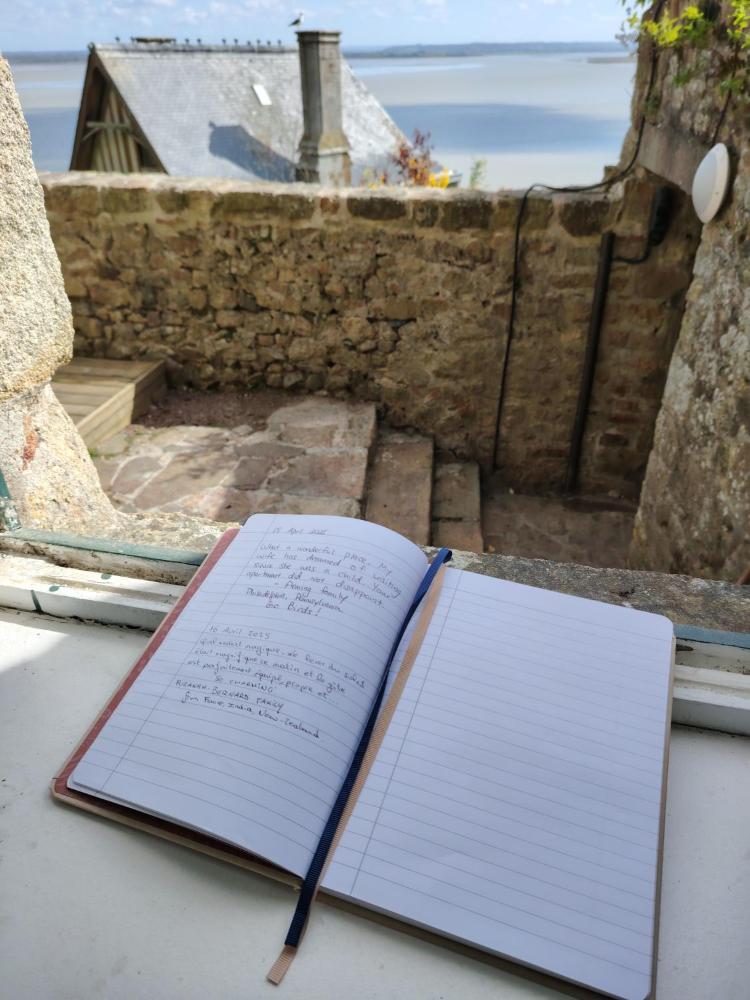 15 April 2025
What a wonderful place. My
wife has dreamed of visiting
since she was a child. Your
apartment did not disappoint.
- Fleming Family
Philadelphia, Pennsylvania
Go Birds!
16 Avril 2025
était magique. Le lever du soleil
était magnifique ce matin et le gîte
est parfaitement équipé, propre et
SO CHARMING
BERNARD FAMILY
from France, India, New-Zealand